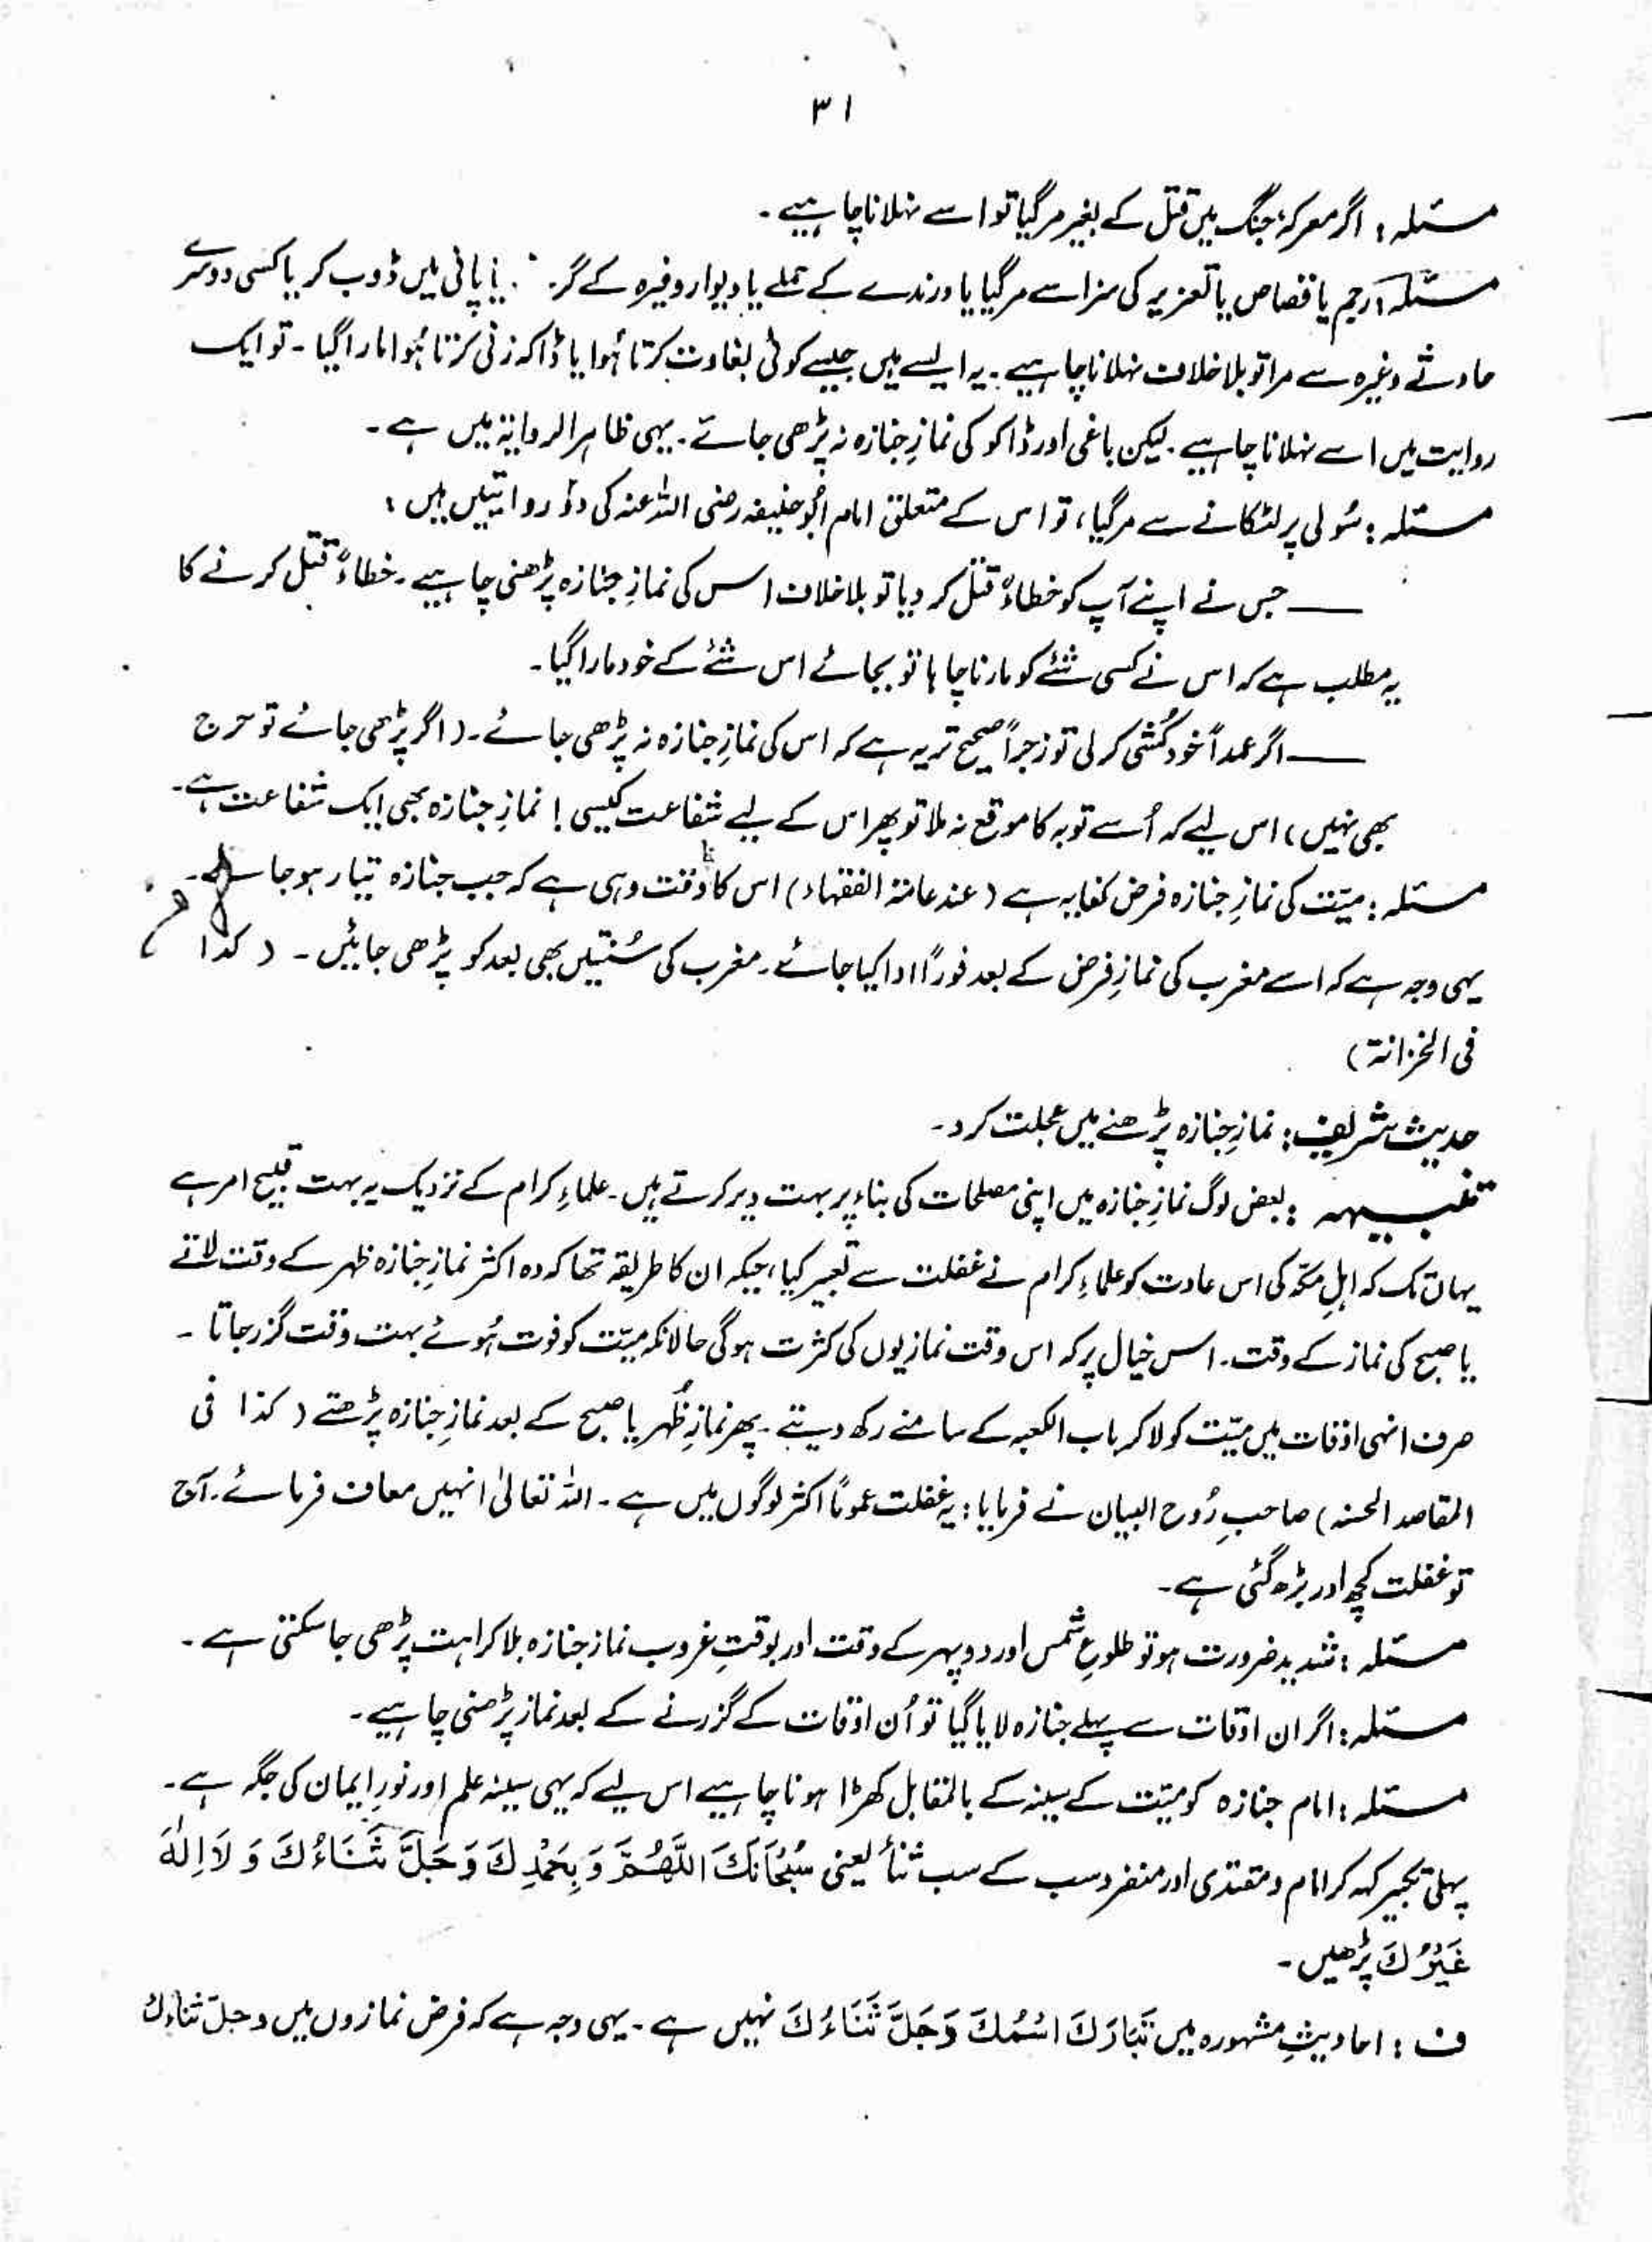 ۳۱
مسئلہ : اگر معرکۂ جنگ میں قتل کے بغیر مر گیا تو اسے نہلانا چاہیے ۔
مسئلہ : رجم یا قصاص یا تعزیر کی سزا سے مر گیا یا درندے کے حملے یا دیوار وغیرہ کے گر یا پانی میں ڈوب کر یا کسی دوسرے
حادثے وغیرہ سے مرا تو بلا خلاف نہلانا چاہیے ۔ یہ ایسے ہیں جیسے کوئی بغاوت کرتا ہُوا یا ڈاکہ زنی کرتا ہُوا مارا گیا ۔ تو ایک
روایت میں اسے نہلانا چاہیے ۔ لیکن باغی اور ڈاکو کی نمازِ جنازہ نہ پڑھی جائے ۔ یہی ظاہر الروایۃ میں ہے ۔
مسئلہ : سُولی پر لٹکانے سے مر گیا ، تو اس کے متعلق امام ابُوحنیفہ رضی اللہ عنہ کی دو روایتیں ہیں :
—— جس نے اپنے آپ کو خطاءً قتل کر دیا تو بلا خلاف اس کی نمازِ جنازہ پڑھنی چاہیے ۔ خطاءً قتل کرنے کا
یہ مطلب ہے کہ اس نے کسی شئے کو مارنا چاہا تو بجائے اس شئے کے خود مارا گیا ۔
—— اگر عمداً خود کُشی کر لی تو زجراً صحیح تر یہ ہے کہ اس کی نمازِ جنازہ نہ پڑھی جائے ۔ ( اگر پڑھی جائے تو حرج
بھی نہیں ) اس لیے کہ اُسے توبہ کا موقع نہ ملا تو پھر اس کے لیے شفاعت کیسی ! نمازِ جنازہ بھی ایک شفاعت ہے ۔
مسئلہ : میّت کی نمازِ جنازہ فرض کفایہ ہے ( عند عامۃ الفقہاء ) اس کا وقت وہی ہے کہ جب جنازہ تیار ہو جائے ۔
یہی وجہ ہے کہ اسے مغرب کی نمازِ فرض کے بعد فوراً ادا کیا جائے ۔ مغرب کی سُنتیں بھی بعد کو پڑھی جائیں ۔ ( کذا
فی الخزانۃ )
حدیث شریف : نمازِ جنازہ پڑھنے میں عجلت کرو ۔
تنبیہہ : بعض لوگ نمازِ جنازہ میں اپنی مصلحات کی بناء پر بہت دیر کرتے ہیں ۔ علماءِ کرام کے نزدیک یہ بہت قبیح امر ہے
یہاں تک کہ اہلِ مکّہ کی اس عادت کو علماءِ کرام نے غفلت سے تعبیر کیا ، جبکہ ان کا طریقہ تھا کہ وہ اکثر نمازِ جنازہ ظہر کے وقت لاتے
یا صبح کی نماز کے وقت ۔ اس خیال پر کہ اس وقت نمازیوں کی کثرت ہو گی حالانکہ میّت کو فوت ہُوئے بہت وقت گزر جاتا ۔
صرف انہی اوقات میں میّت کو لا کر باب الکعبہ کے سامنے رکھ دیتے ۔ پھر نمازِ ظُہر یا صبح کے بعد نمازِ جنازہ پڑھتے ( کذا فی
المقاصد الحسنہ ) صاحبِ رُوح البیان نے فرمایا : یہ غفلت عموماً اکثر لوگوں میں ہے ۔ اللہ تعالیٰ انہیں معاف فرمائے ۔ آج
تو غفلت کچھ اور بڑھ گئی ہے ۔
مسئلہ : شدید ضرورت ہو تو طلوعِ شمس اور دوپہر کے وقت اور بوقتِ غروب نماز جنازہ بلا کراہت پڑھی جا سکتی ہے ۔
مسئلہ : اگر ان اوقات سے پہلے جنازہ لایا گیا تو اُن اوقات کے گزرنے کے بعد نماز پڑھنی چاہیے ۔
مسئلہ : امام جنازہ کو میّت کے سینہ کے بالمقابل کھڑا ہونا چاہیے اس لیے کہ یہی سینہ علم اور نورِ ایمان کی جگہ ہے ۔
پہلی تکبیر کہہ کر امام و مقتدی اور منفرد سب کے سب ثنأ یعنی سُبْحَانَكَ اللّٰهُمَّ وَ بِحَمْدِكَ وَ جَلَّ ثَنَاءُكَ وَ لَا اِلٰهَ
غَيْرُكَ پڑھیں ۔
ف : احادیثِ مشہورہ میں تَبَارَكَ اسْمُكَ وَ جَلَّ ثَنَاءُكَ نہیں ہے ۔ یہی وجہ ہے کہ فرض نمازوں میں وجلّ ثناءك